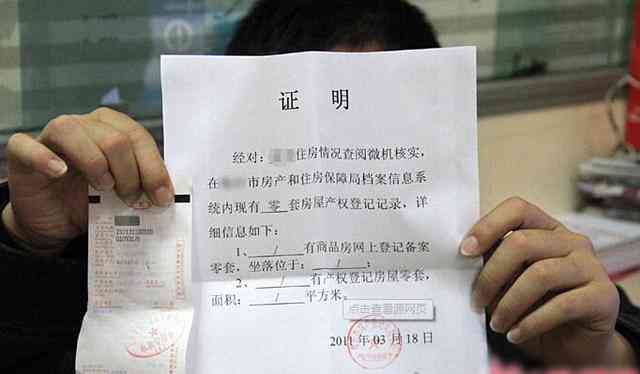 证 明
经对：住房情况查阅微机核实，
在市房产和住房保障局档案信息系
统内现有 零 套房屋产权登记记录，详
细信息如下：
1、 / 有商品房网上登记备案
零套，坐落位于： / ；
2、 / 有产权登记房屋零套，
面积： / 平方米。
点击查看源网页
2011 年 03 月 18 日